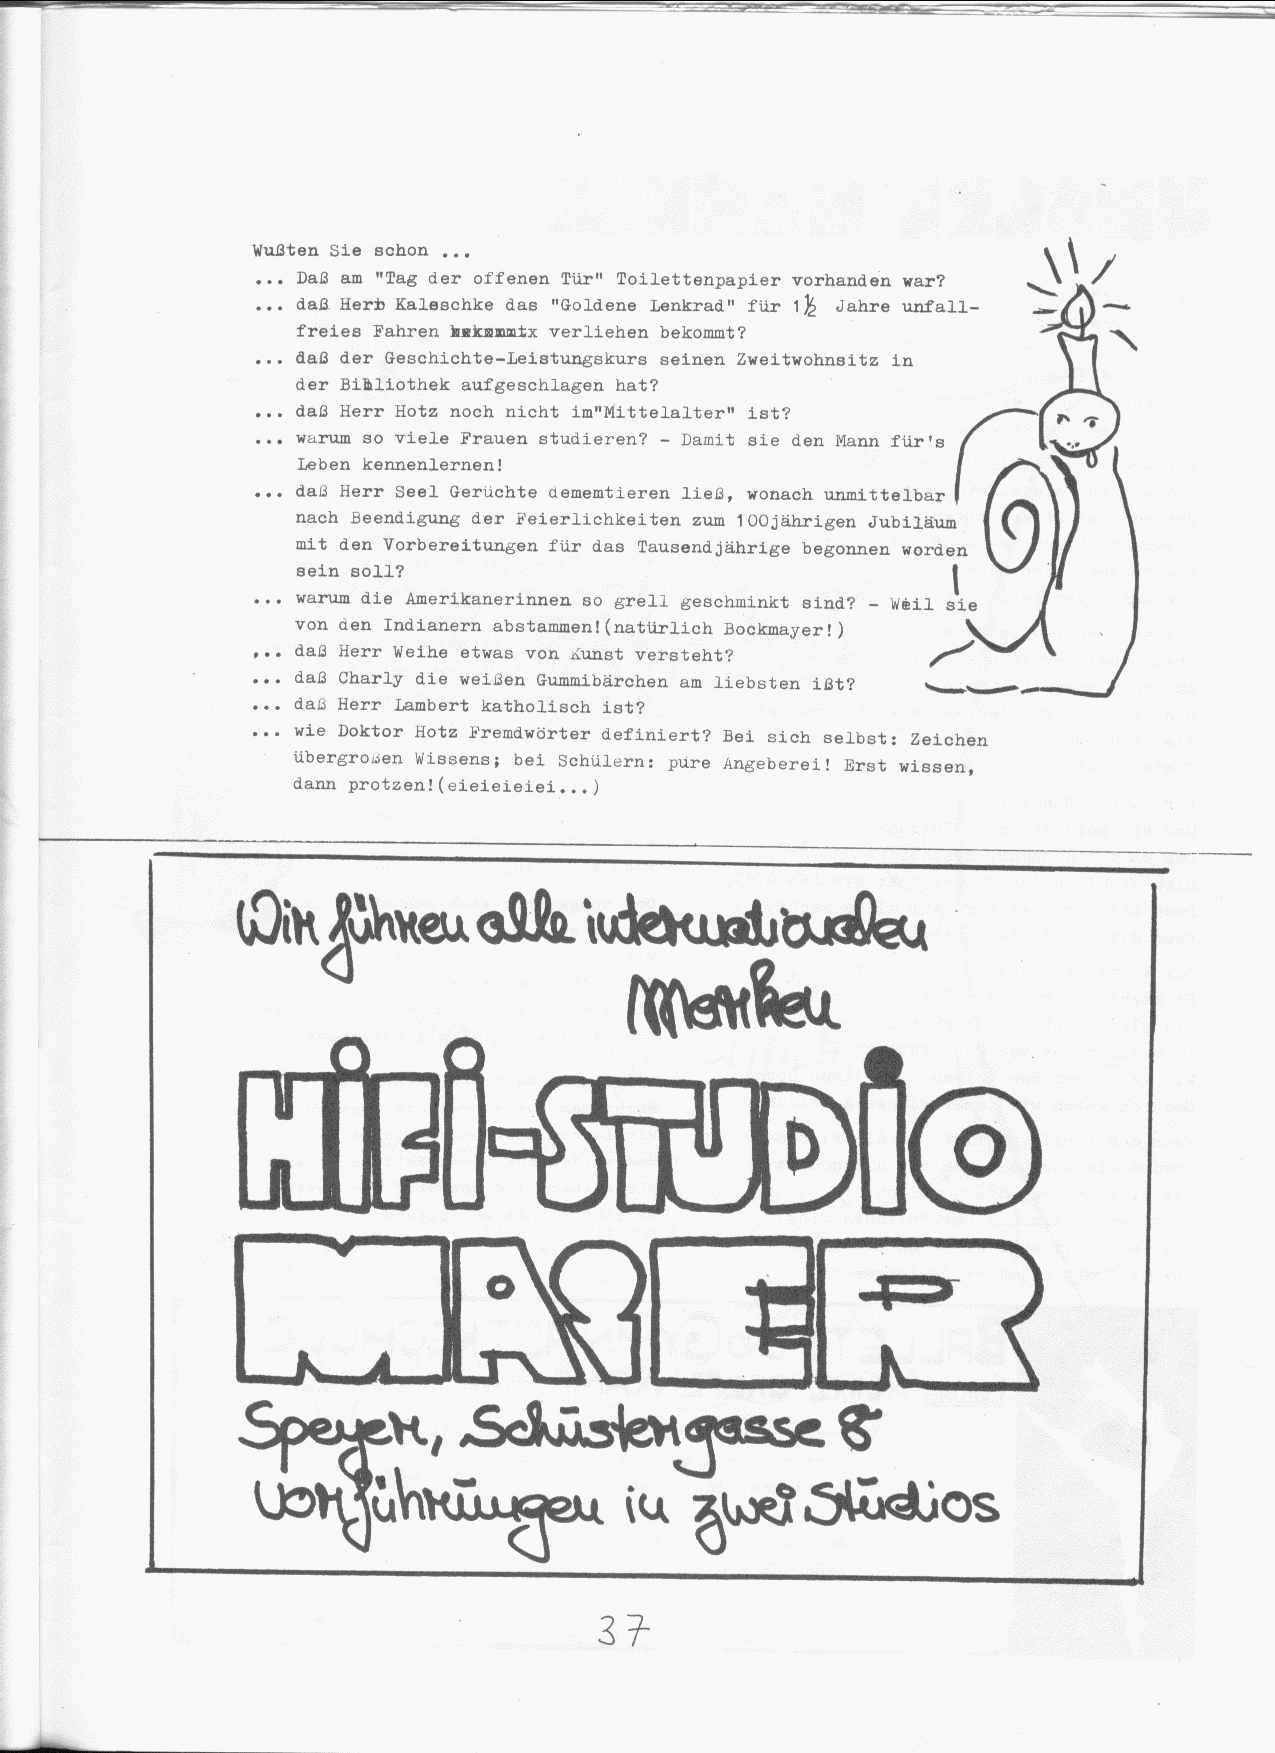 Wußten Sie schon ...
... Daß am "Tag der offenen Tür" Toilettenpapier vorhanden war?
... daß Herr Kaleschke das "Goldene Lenkrad" für 1½ Jahre unfall-
freies Fahren verliehen bekommt?
... daß der Geschichte-Leistungskurs seinen Zweitwohnsitz in
der Bibliothek aufgeschlagen hat?
... daß Herr Hotz noch nicht im"Mittelalter" ist?
... warum so viele Frauen studieren? - Damit sie den Mann für's
Leben kennenlernen!
... daß Herr Seel Gerüchte dememtieren ließ, wonach unmittelbar
nach Beendigung der Feierlichkeiten zum 100jährigen Jubiläum
mit den Vorbereitungen für das Tausendjährige begonnen worden
sein soll?
... warum die Amerikanerinnen so grell geschminkt sind? - Weil sie
von den Indianern abstammen!(natürlich Bockmayer!)
,.. daß Herr Weihe etwas von Kunst versteht?
... daß Charly die weißen Gummibärchen am liebsten ißt?
... daß Herr Lambert katholisch ist?
... wie Doktor Hotz Fremdwörter definiert? Bei sich selbst: Zeichen
übergroßen Wissens; bei Schülern: pure Angeberei! Erst wissen,
dann protzen!(eieieieiei...)
Wir führen alle internationalen
Marken
HiFi-STUDiO
MAiER
Speyer, Schüstergasse 8
Vorführungen in zwei Stüdios
37